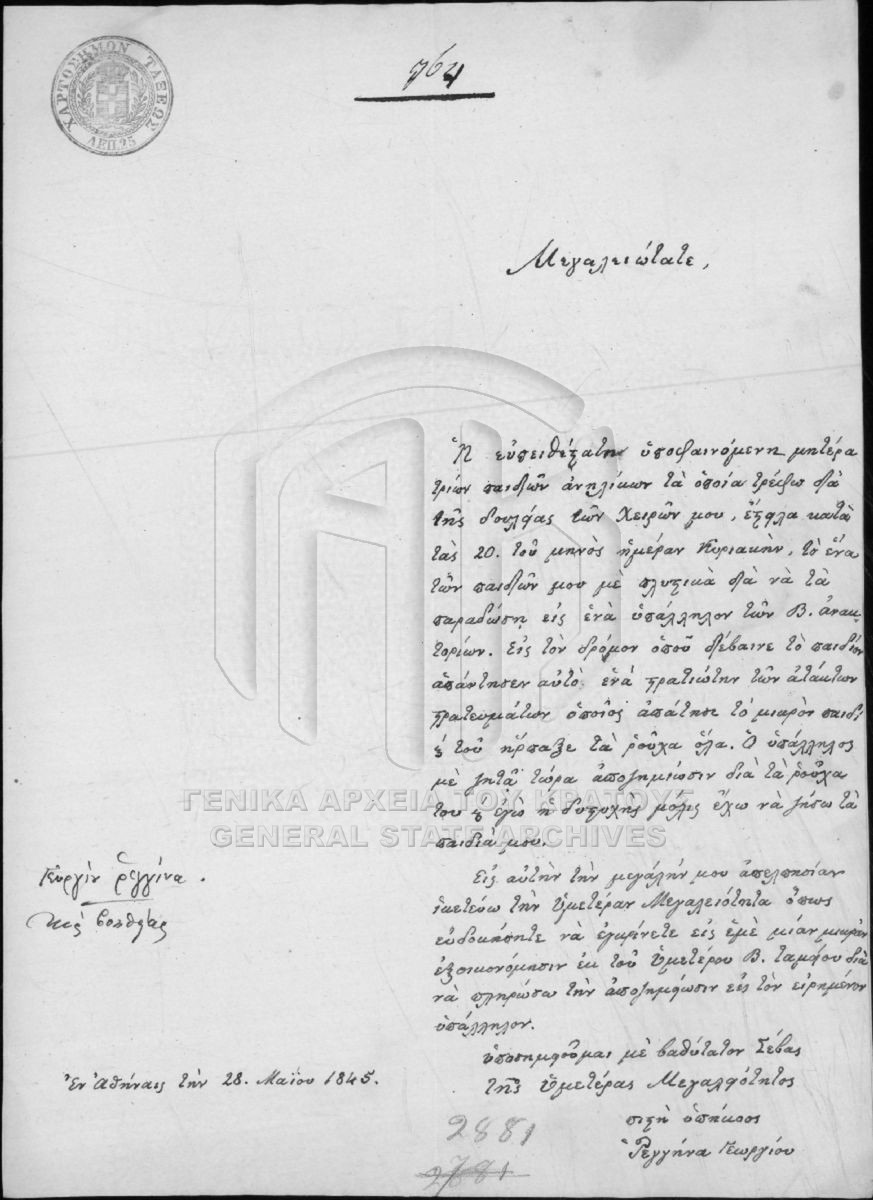 ΧΑΡΤΟΣΗΜΟΝ ΤΑΞΕΩΣ
ΛΕΠ.25
764
Μεγαλειότατε,
Ἡ εὐπειθέστατη ὑποφαινόμενη μητέρα
τριῶν παιδιῶν ἀνηλίκων τὰ ὁποία τρέφω διὰ
τῆς δουλείας τῶν Χειρῶν μου, ἔστειλα κατὰ
τὰς 20. τοῦ μηνὸς ἡμέραν Κυριακὴν, τὸ ἕνα
τῶν παιδιῶν μου μὲ πλυτικὰ διὰ νὰ τὰ
παραδώσῃ εἰς ἑνὰ ὑπάλληλον τῶν Β. ἀνακ-
τορίων. Εἰς τὸν δρόμον ὁποῦ διέβαινε τὸ παιδίον
ἀπάντησεν αὐτὸ ἑνὰ στρατιώτην τῶν ἀτάκτων
στρατευμάτων ὁποῖος ἀπάτησε τὸ μικρὸν παιδὶ
καὶ τοῦ ἥρπαξε τὰ ῥοῦχα ὅλα. Ὁ ὑπάλληλος
μὲ ζητᾶ τώρα ἀποζημίωσιν διὰ τὰ ῥοῦχα
του καὶ ἐγὼ ἡ δυστυχὴς μόλις ἔχω νὰ ζήσω τὰ
παιδιὰ μου.
Εἰς αὐτὴν τὴν μεγάλην μου ἀπελπησίαν
ἱκετεύω τὴν Ὑμετέραν Μεγαλειότητα ὅπως
εὐδοκήσητε νὰ ἐγκρίνετε εἰς ἐμὲ μίαν μικρὰν
ἐξοικονόμησιν ἐκ τοῦ Ὑμετέρου Β. ταμείου διὰ
νὰ πληρώσω τὴν ἀποζημίωσιν εἰς τὸν εἰρημένον
ὑπάλληλον.
ὑποσημειοῦμαι μὲ βαθύτατον Σέβας
τῆς Ὑμετέρας Μεγαλειότητος
πιστὴ ὑπήκοος
Ῥεγγήνα Γεωργίου
Γεωργίου Ῥεγγίνα.
βοηθείας
Ἐν Ἀθήναις τὴν 28. Μαΐου 1845.
2881
2781
ΓΕΝΙΚΑ ΑΡΧΕΙΑ ΤΟΥ ΚΡΑΤΟΥΣ
GENERAL STATE ARCHIVES